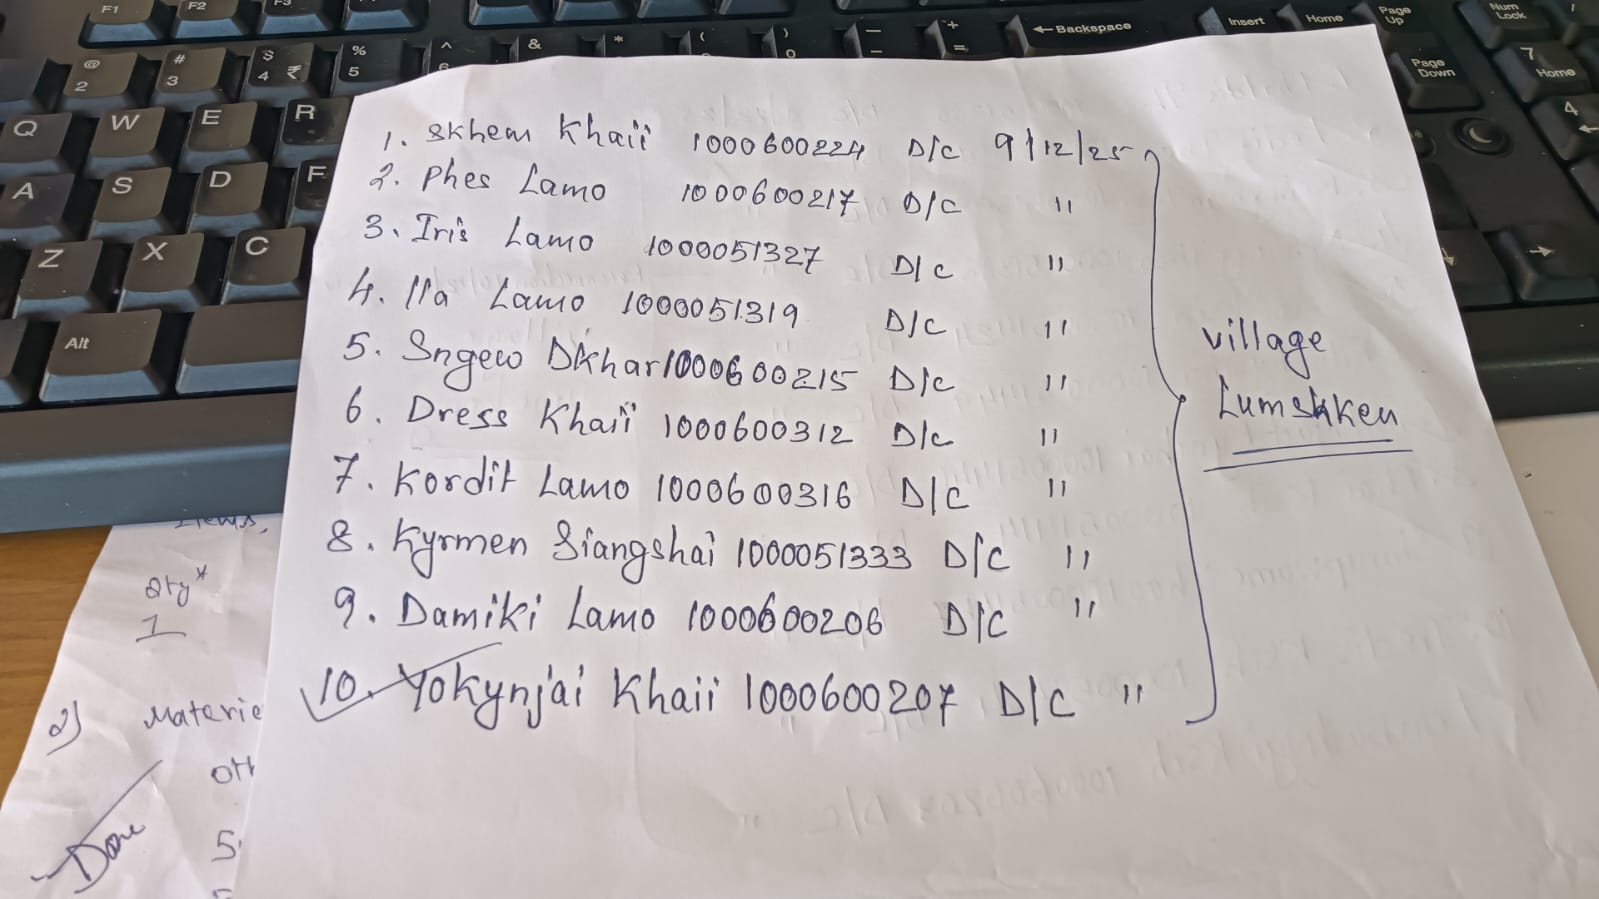 F1 F2 F3
@ 2 # 3 $ 4 ₹ % 5 ^ 6 & * ( ) 0 — - + = ← Backspace Insert Home Page Up Num Lock
Q W E R Page Down 7 Home
A S D F 4 ←
Z X C →
Alt
1. Skhem Khaii 1000600224 D/C 9/12/25
2. Phes Lamo 1000600217 D/C "
3. Iris Lamo 1000051327 D/C "
4. Ila Lamo 1000051319 D/C "
5. Sngew Dkhar 1000600215 D/C "
6. Dress Khaii 1000600312 D/C "
7. Kordit Lamo 1000600316 D/C "
8. Kyrmen Siangshai 1000051333 D/C "
9. Damiki Lamo 1000600206 D/C "
10. Yokynjai Khaii 1000600207 D/C "
village
Lumshken
Items,
Qty*
1
2) Materie
oth
5.
Done